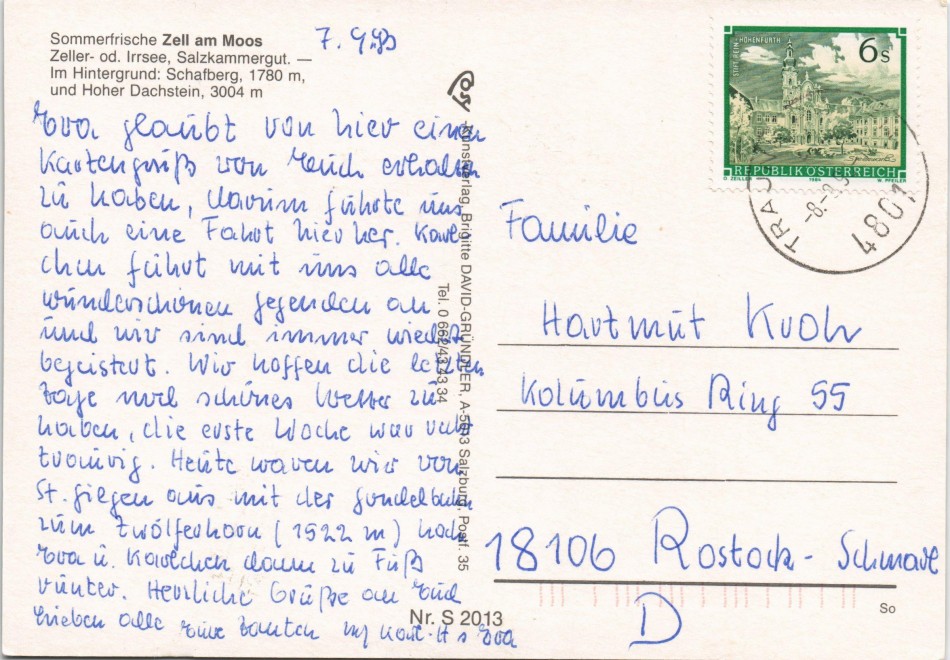 Sommerfrische Zell am Moos
Zeller- od. Irrsee, Salzkammergut. —
Im Hintergrund: Schafberg, 1780 m,
und Hoher Dachstein, 3004 m
7. 9.
Eva glaubt von hier einen
Kartengruß von Euch erhalten
zu haben, darum führte uns
auch eine Fahrt hierher. Karl-
chen fährt mit uns alle
wunderschönen Gegenden an
und wir sind immer wieder
begeistert. Wir hoffen die letzten
Tage noch schönes Wetter zu
haben, die erste Woche war recht
traurig. Heute waren wir von
St. Gilgen aus mit der Gondelbahn
zum Zwölferhorn (1522 m) hoch
Eva u. Karlchen dann zu Fuß
runter. Herzliche Grüße an Euch
Lieben alle Eure Tanten
Eva
Kunstverlag, Brigitte DAVID-GRÜNDLER, A-5013 Salzburg, Postf. 35
Tel. 0 662/43 43 34
Nr. S 2013
STIFT REIN-HOHENFURTH
6 S
REPUBLIK ÖSTERREICH
O. ZEILLER W. PFEILER
4801
Familie
Hartmut Kroh
Kolumbus Ring 55
18106 Rostock - Schmarl
D
So